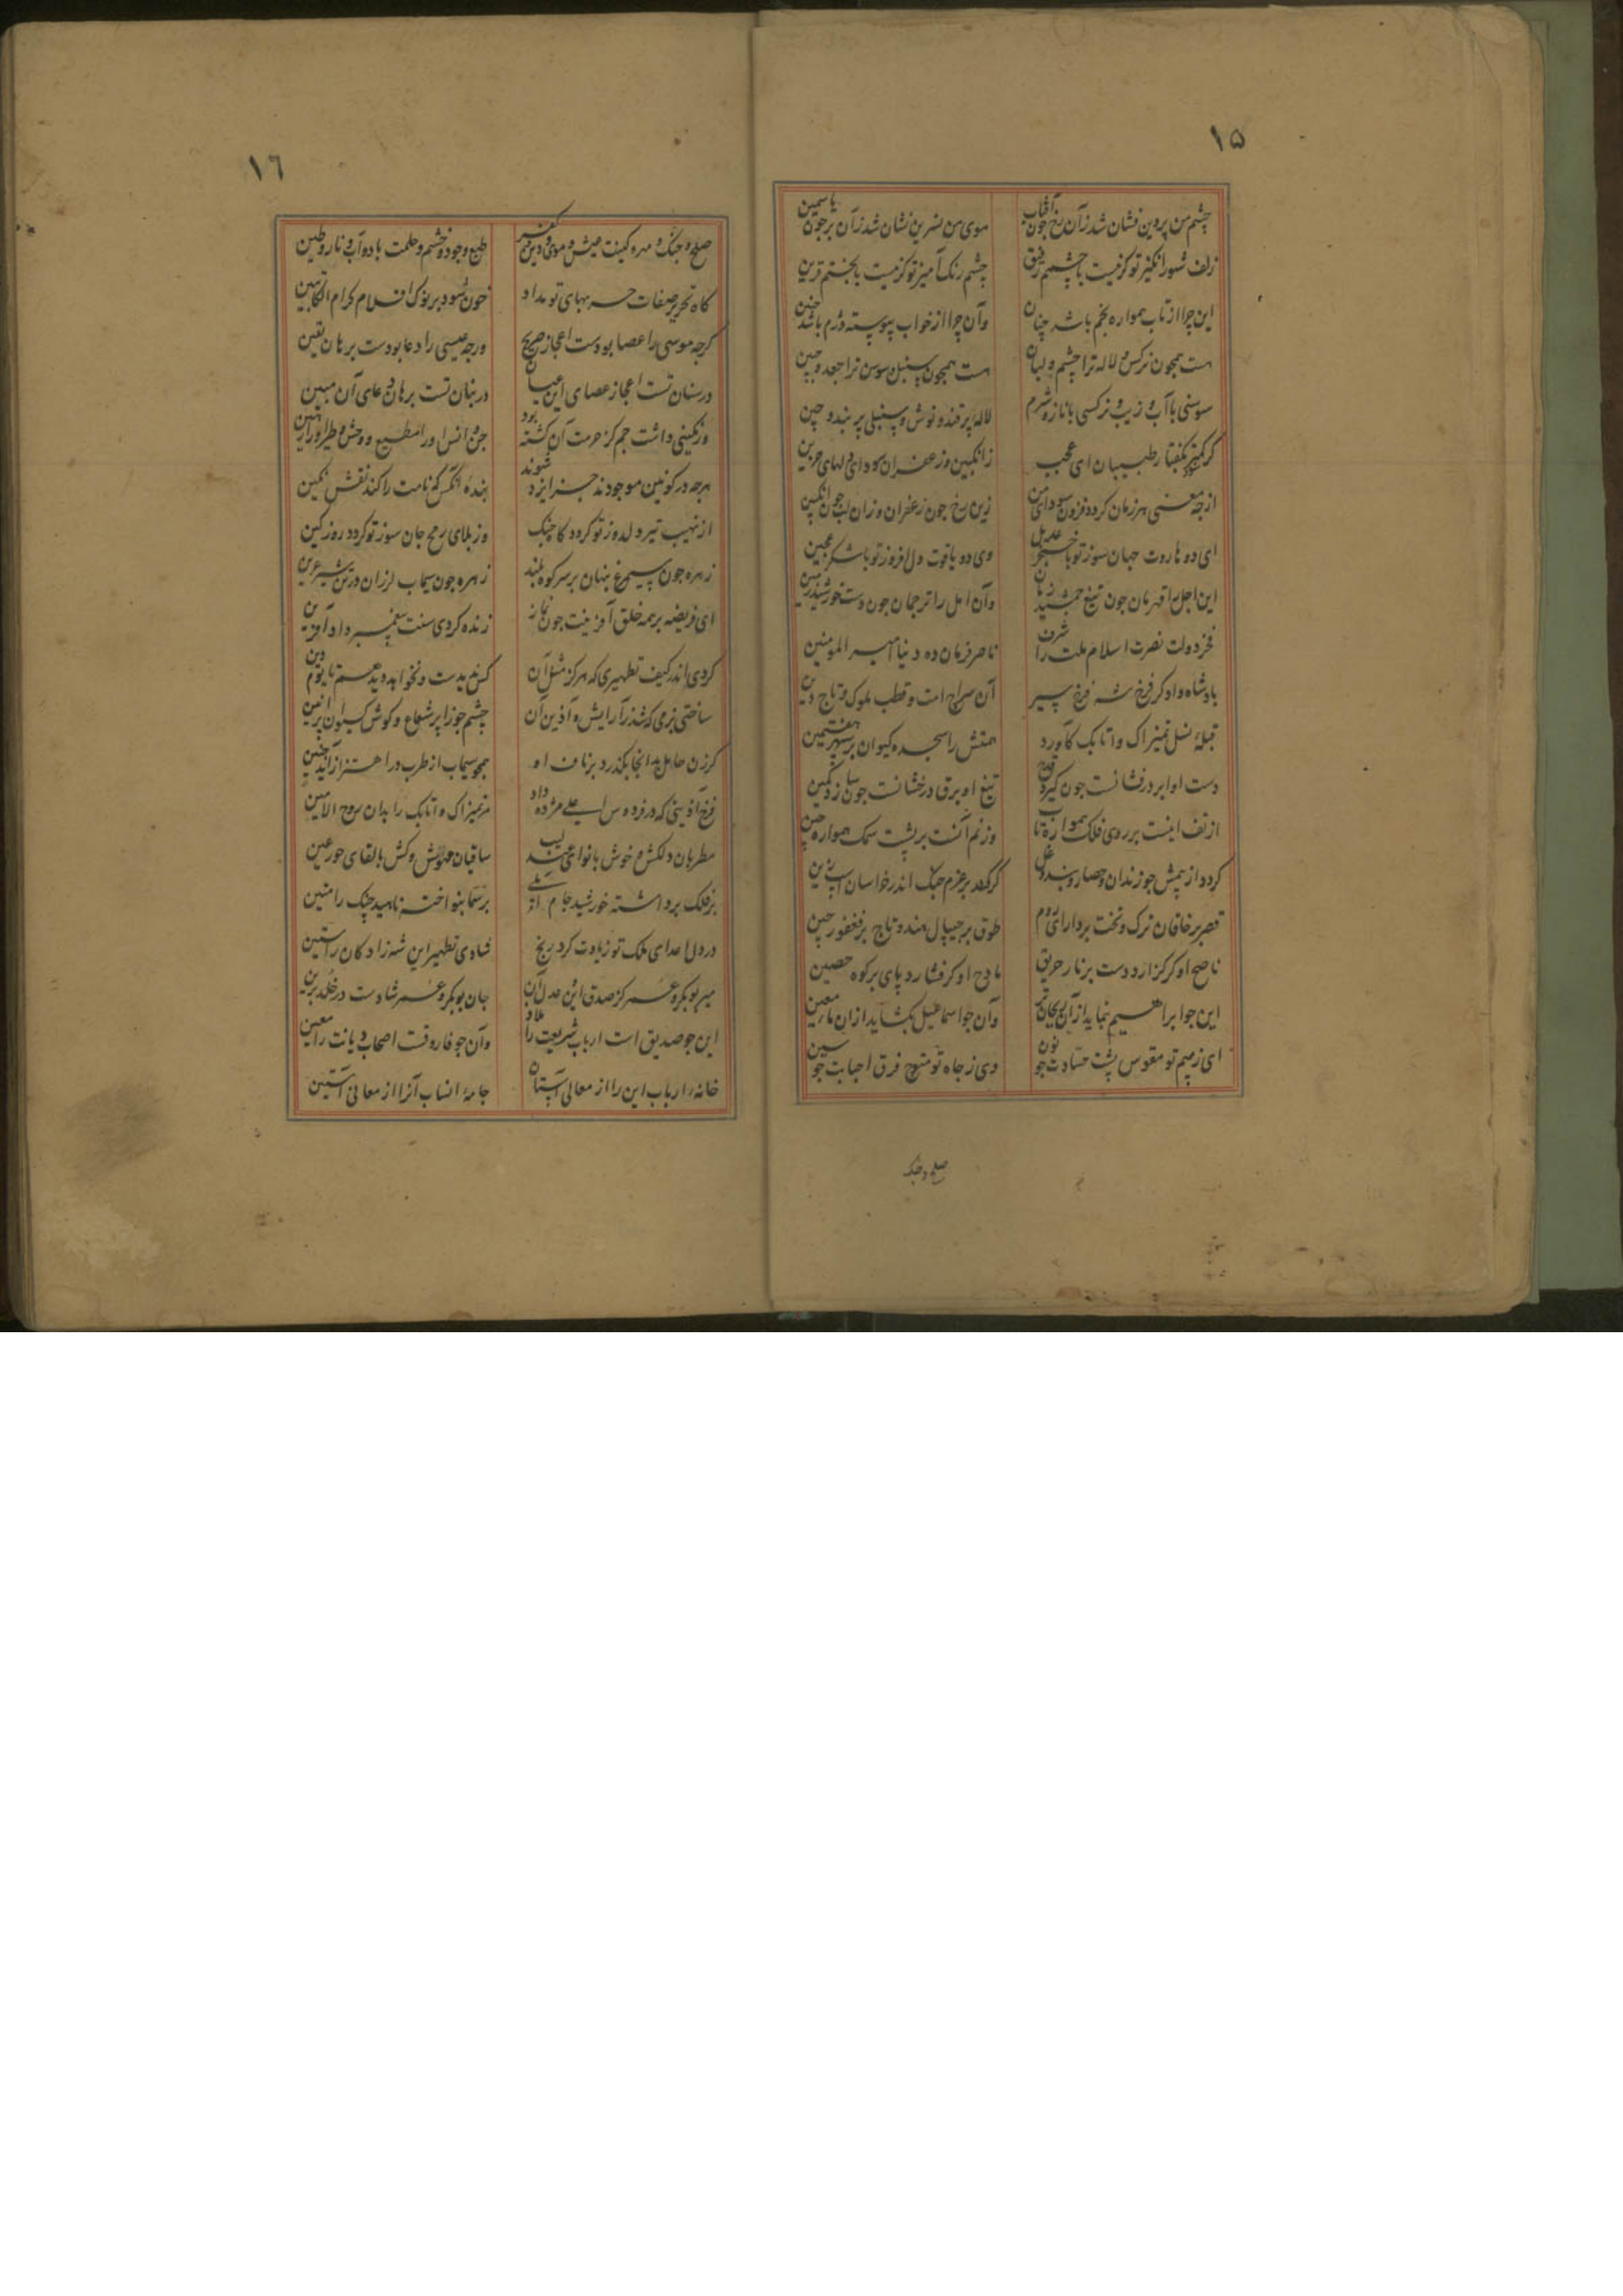 ۱۵
چشم من پروین فشان شد زآن رخ چون آفتاب موی من نسرین نشان شد زآن بر چون یاسمین
زلف شورانگیز تو کز نیست با چشمم رفیق چشم رنک آمیز تو کز نیست با بختم قرین
این چرا از تاب همواره بخم باشد چنان وآن چرا از خواب پیوسته دژم باشد چنین
هست همچون نرکس و لاله ترا چشم و لبان هست همچون سنبل و سوسن ترا جعد و جبین
سوسنی با آب و زیب و نرکسی با ناز و شرم لاله پر قند و نوش و سنبلی پر بند و چین
کر کمتر بکفتار طبیبان ای عجب زانکبین و زعفران سودای دلهای حزین
از چه معنی هر زمان کردد فزون سودای من زین رخ چون زعفران وزان لب چون انکبین
ای دو هاروت جهان سوز تو با خنجر عدیل وی دو یاقوت دل افروز تو با شکر عجین
این اجل را قهرمان چون تیغ جمشید زمان وآن امل را ترجمان چون دست خورشید زمین
فخر دولت نصرت اسلام ملت را شرف ناصر فرمان ده دنیا امیر المومنین
بادشاه دادکر فرخ شه فرخ سیر آن سراج امت و قطب ملوک و تاج دین
قبله نسل تمیراک و اتابک کآورد همتش را سجده کیوان بر سپهر هفتمین
دست او ابر درفشانست چون کیرد قدح تیغ او برق درخشانست چون سازد کمین
از تف اینست بر روی فلک همواره تاب وز نم آنست بر پشت سمک همواره چین
کردد از بیمش چو زندان و حصار و بند و غل کر کند بر عزم جنک اندر خراسان اسب زین
قصر بر خاقان ترک و تخت بر دارای روم طوق بر جیپال هند و تاج بر فغفور چین
ناصح او کر کزارد دست بر نار حریق مادح او کر فشارد پای بر کوه حصین
این چو ابراهیم نماید از آن ریحان تر وآن چو اسماعیل بکشاید از ان ماء معین
ای ز بیم تو مقوس پشت حسادت چو نون وی ز جاه تو متوج فرق احبابت چو سین
صلح و جنک
۱٦
صلح و جنک و مهر و کینت عیش و موی و دین و کفر طبع و جود و خشم و حلمت باد و آب و نار و طین
کاه تحریر صفات حربهای تو مداد خون شود بر نوک اقلام کرام الکاتبین
کرچه موسی را عصا بودست اعجاز صریح ورچه عیسی را دعا بودست برهان یقین
در سنان تست اعجاز عصای این عیان در بنان تست برهان دعای آن مبین
ور نکینی داشت جم کز حرمت آن کشته بود جن و انس او را مطیع و وحش و طیر او را رهین
هرچه در کونین موجودند جز ایزد شوند بنده آنکس که نامت را کند نقش نکین
از نهیب تیر دلدوز تو کردد کاه جنک وز بلای رمح جان سوز تو کردد روز کین
زهره چون سیمرغ بنهان بر سر کوه بلند زهره چون سیماب لرزان در تن شیر عرین
ای فریضه بر همه خلق آفرینت چون نماز زنده کردی سنت پیغمبر داد آفرین
کردی اندر کیف تطهیری که هرکز مثل آن کس ندیدست و نخواهد دید هم تا یوم دین
ساختی بزمی که شد زآرایش و آذین آن چشم جوزا پر شعاع و کوش کیوان پر طنین
کر زن حامل بدانجا بکذرد بر ناف او همچو سیماب از طرب در اهتزاز آید جنین
فرخ آذینی که در فردوس اعلی مژده داد مر تمیراک و اتابک را بدان روح الامین
مطربان دلکش و خوش با نوای عندلیب ساقیان مهوش و کش با لقای حور عین
بر فلک برداشته خورشید جام از بر سما بنواخته ناهید چنک رامتین
در دل اعدای ملک تو زیادت کرد رنج شادی تطهیر این شه زادکان راستین
میر بوبکر و عمر کز صدق این و عدل آن جان بوبکر و عمر شادست در خلد برین
این چو صدیق است ارباب شریعت را ملاذ وآن چو فاروقست اصحاب دیانت را معین
خانه ارباب این را از معالی آستان جامه انساب آنرا از معانی آستین